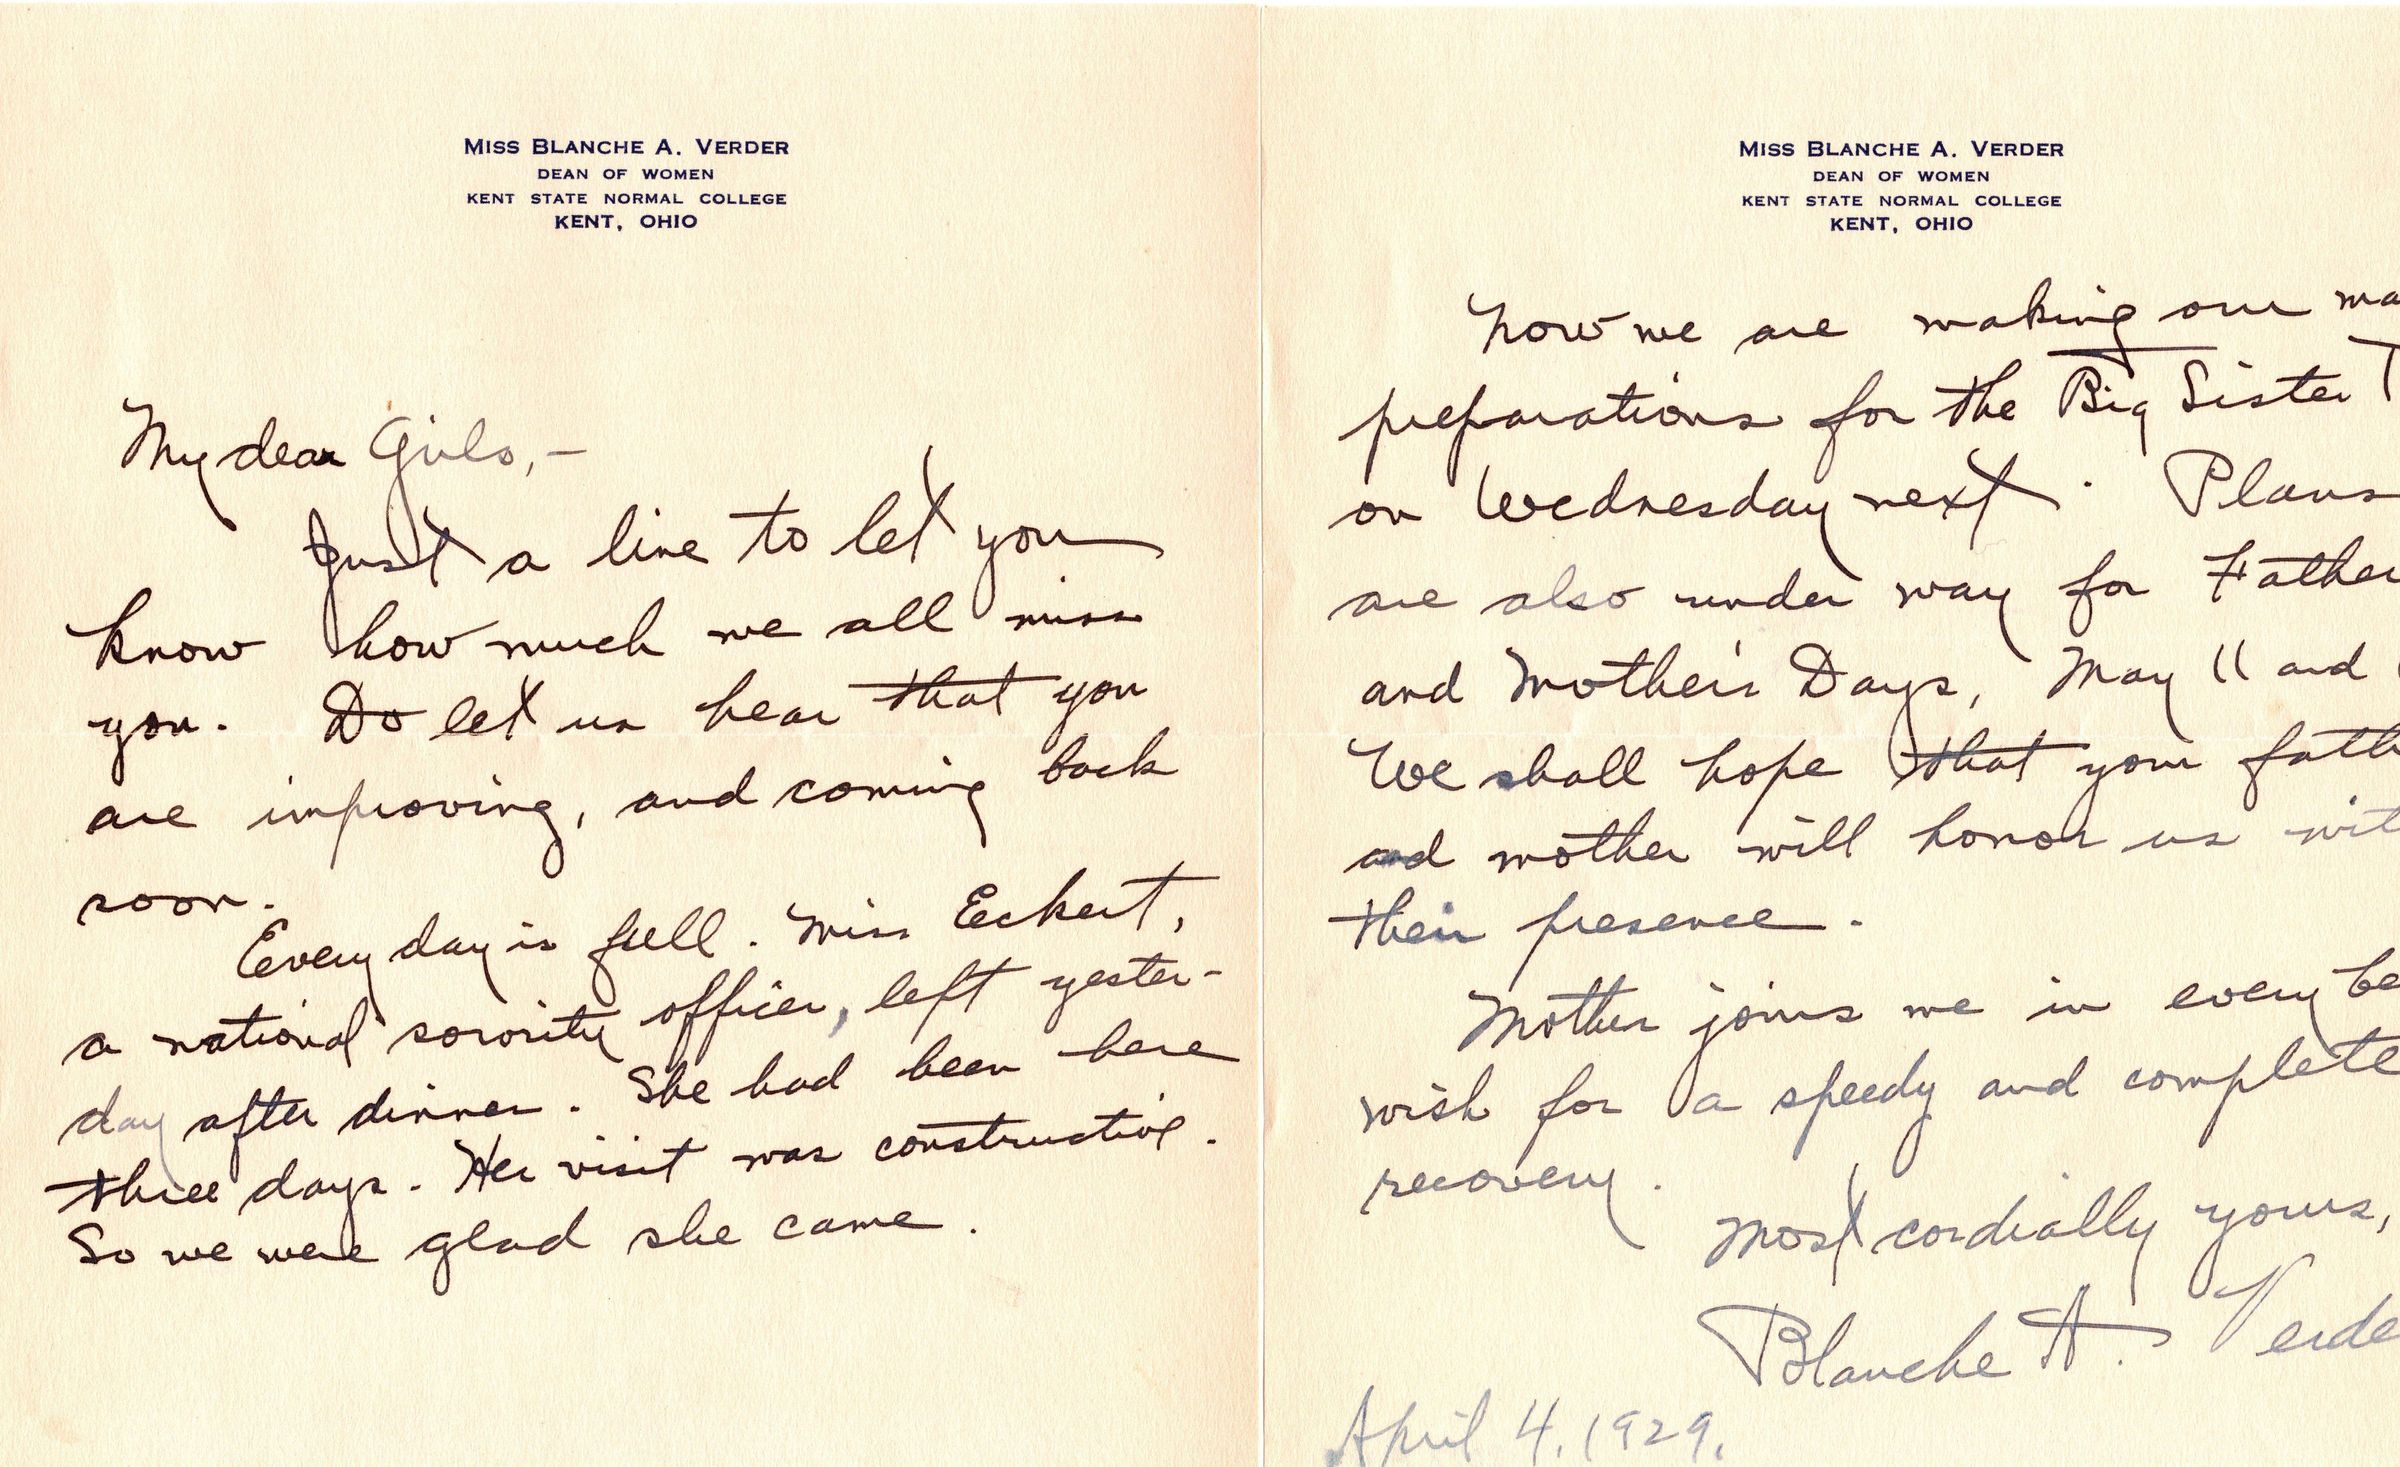 MISS BLANCHE A. VERDER
DEAN OF WOMEN
KENT STATE NORMAL COLLEGE
KENT, OHIO
My dear Girls,-
Just a line to let you
know how much we all miss
you. Do let us hear that you
are improving, and coming back
soon.
Every day is full. Miss Eckert,
a national sorority officer, left yester-
day after dinner. She had been here
three days. Her visit was constructive.
So we were glad she came.
MISS BLANCHE A. VERDER
DEAN OF WOMEN
KENT STATE NORMAL COLLEGE
KENT, OHIO
Now we are making our ma
preparations for the Big Sister T
on Wednesday next. Plans
are also under way for Father
and Mother's Days, May 11 and
We shall hope that your fath
and mother will honor us wit
their presence.
Mother joins me in every be
wish for a speedy and complete
recovery.
Most cordially yours,
Blanche A. Verde
April 4, 1929.